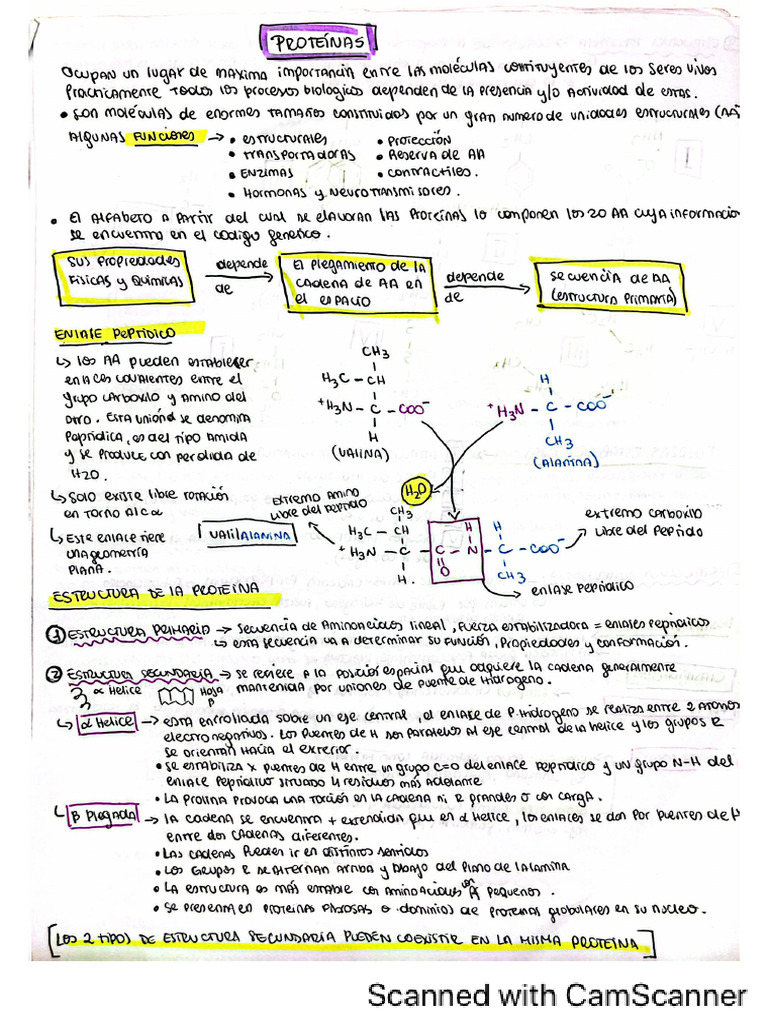 PROTEÍNAS
Ocupan un lugar de maxima importancia entre las moléculas constituyentes de los seres vivos
Practicamente todos los procesos biologicos dependen de la presencia y/o actividad de estas.
• Son moléculas de enormes tamaños constituidos por un gran numero de unidades estructurales
ALGUNAS FUNCIONES → • ESTRUCTURALES • PROTECCIÓN
• TRANSPORTADORAS • Reserva de AA
• ENZIMAS • CONTRACTILES.
• Hormonas y Neurotransmisores.
• El alfabeto a partir del cual se elavoran las proteínas lo componen los 20 AA cuya informacio
se encuentra en el codigo genetico.
Sus propiedades Físicas y Químicas
depende de
El plegamiento de la cadena de AA en el espacio
depende de
Secuencia de AA (estructura primaria)
ENLASE PEPTIDICO
↳ los AA pueden establecer
enlaces covalentes entre el
grupo carboxilo y amino del
otro. Esta unión se denomina
Peptidica, es del tipo Amida
y se produce con perdida de
H2O.
↳ Solo existe libre rotación
en torno al Cα
↳ Este enlace tiene
una geometría
plana.
CH3
H3C - CH
+H3N - C - COO-
H
(VALINA)
H
+H3N - C - COO-
CH3
(Alanina)
H2O
extremo amino
libre del peptido
ValilAlanina
CH3
H3C - CH H H
+H3N - C - C - N - C - COO-
H. O CH3
extremo carboxilo
libre del peptido
enlase peptidico
ESTRUCTURA DE LA PROTEINA
1 ESTRUCTURA PRIMARIA → Secuencia de Aminoacidos lineal, fuerza estabilizadora = enlases peptidicos
↳ esta secuencia va a determinar su función, Propiedades y conformación.
2 ESTRUCTURA SECUNDARIA → se refiere a la posición espacial que adquiere la cadena generalmente
mantenida por uniones de puente de Hidrogeno.
α Helice Hoja β
↳ α Helice → esta enrollada sobre un eje central, el enlase de P. Hidrogeno se realiza entre 2 atomos
electronegativos. Los puentes de H son paralelos al eje central de la helice y los grupos R
se orientan hacia el exterior.
• Se estabiliza x puentes de H entre un grupo C=O del enlace peptidico y un grupo N-H del
enlace peptidico situado 4 residuos más adelante
• La prolina provoca una torción en la cadena ni R grandes o con carga.
↳ β Plegada → la cadena se encuentra + extendida que en α Helice, los enlaces se dan por puentes de H
entre dos cadenas diferentes.
• Las cadenas pueden ir en distintos sentidos
• Los grupos R se alternan arriba y abajo del plano de la lamina
• La estructura es más estable con aminoacidos con R pequeños.
• Se presenta en proteinas fibrosas o dominios de proteinas globulares en su nucleo.
[LOS 2 TIPOS DE ESTRUCTURA SECUNDARIA PUEDEN COEXISTIR EN LA MISMA PROTEINA]
Scanned with CamScanner